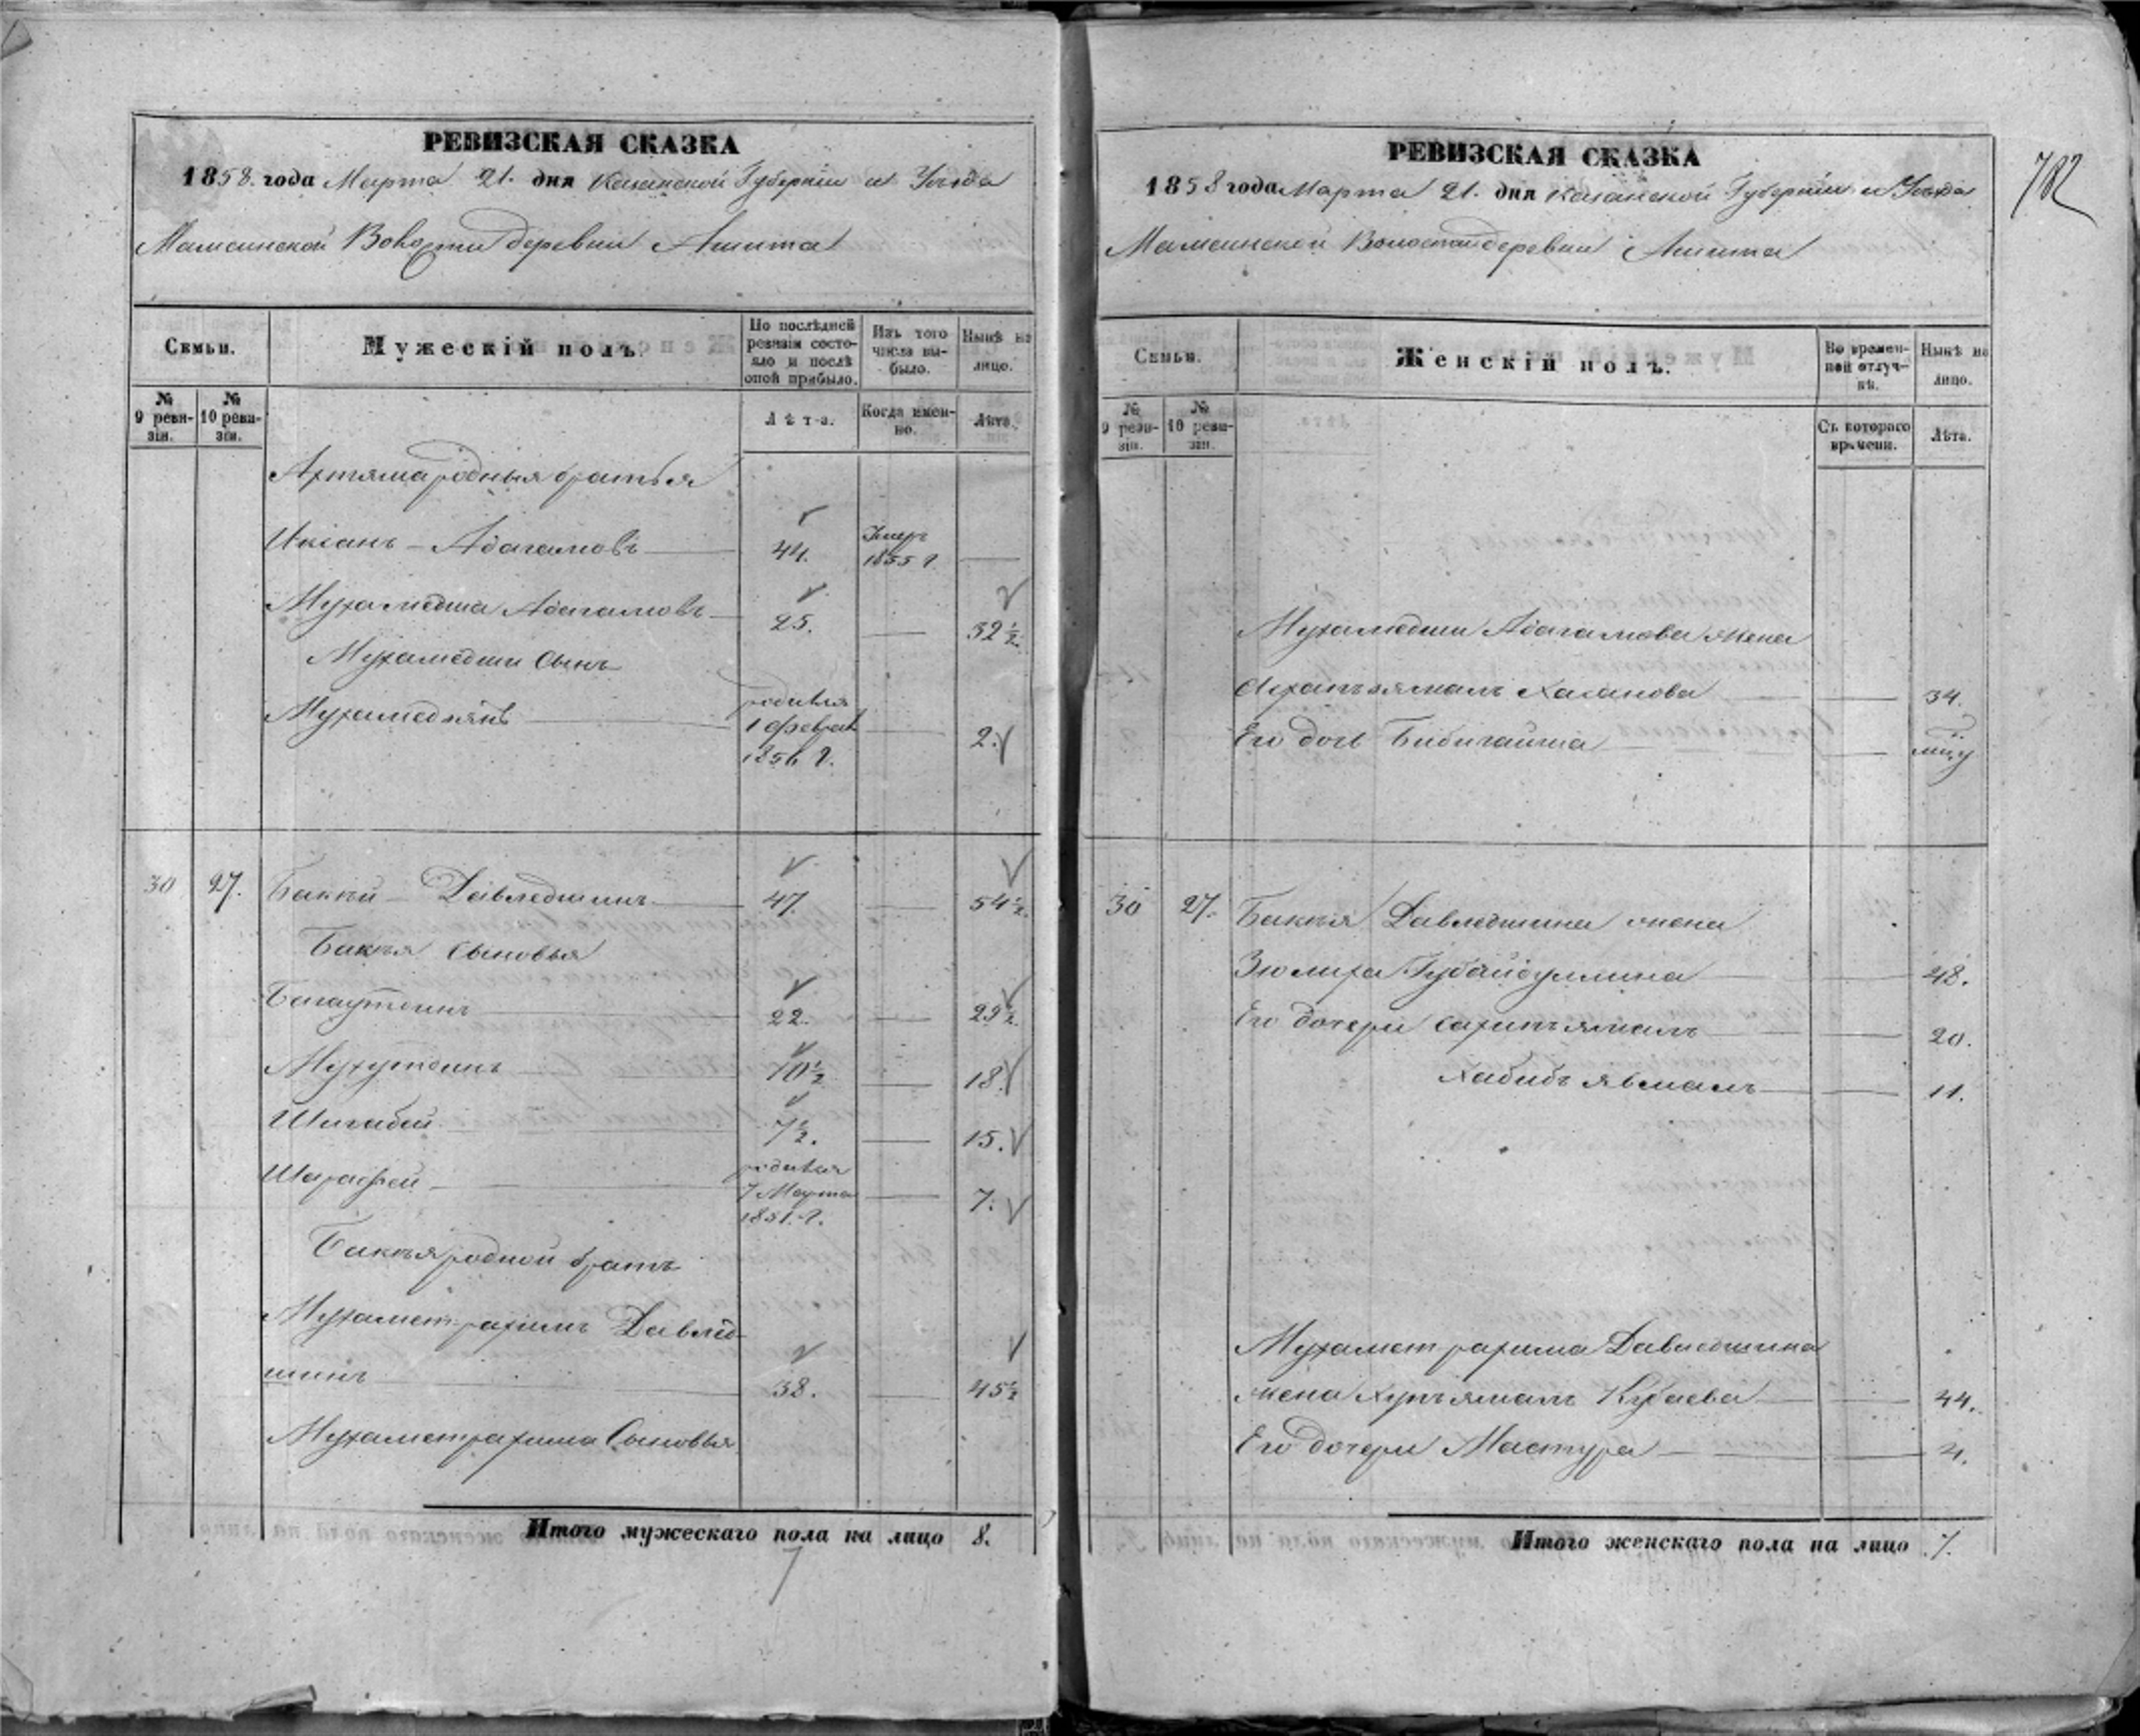 РЕВИЗСКАЯ СКАЗКА
1858 года Марта 21. дня Казанской Губерніи и Уѣзда
Мамсинской Волости деревни Ашита
Семьи.
Мужескій полъ.
По послѣдней ревизіи состояло и послѣ оной прибыло.
Изъ того числа выбыло.
Нынѣ на лицо.
№ 9 ревизіи.
№ 10 ревизіи.
Лѣта.
Когда именно.
Лѣта.
родныя братья
Адагамовъ 44. Умеръ 1855 г
Мухамедша Адагамовъ 25. 32½
Мухамедши Сынъ
Мухамедзянъ родился 1 феврал 1856 г. 2.
30 27. Бакѣй Давледшинъ 47. 54½
Бакѣя сыновья
Багаутдинъ 22. 29½
Мухутдинъ 10½ 18.
Шигабей 7½. 15.
Шарафей родился 7 Марта 1851. г. 7.
Бакѣя родной братъ
Мухаметрахимъ Давлед-
шинъ 38. 45½
Мухаметрахима Сыновья
Итого мужескаго пола на лицо 8.
7
782
РЕВИЗСКАЯ СКАЗКА
1858 года Марта 21. дня Казанской Губерніи и Уѣзда
Мамсинской Волости деревни Ашита
Семьи.
Женскій полъ.
Во временной отлучкѣ.
Нынѣ на лицо.
№ 9 ревизіи.
№ 10 ревизіи.
Съ котораго времени.
Лѣта.
Мухамедши Адагамова жена
Хасанова 34.
Его дочь Бибигайша
30 27. Бакѣя Давледшина жена
Зюлиха Губайдуллина 48.
Его дочери Сахипъямалъ 20.
Хабибъ яьмалъ 11.
Мухаметрахима Давледшина
жена Хупъямалъ Кубаева 44.
Его дочери Мастура 4.
Итого женскаго пола на лицо 7.